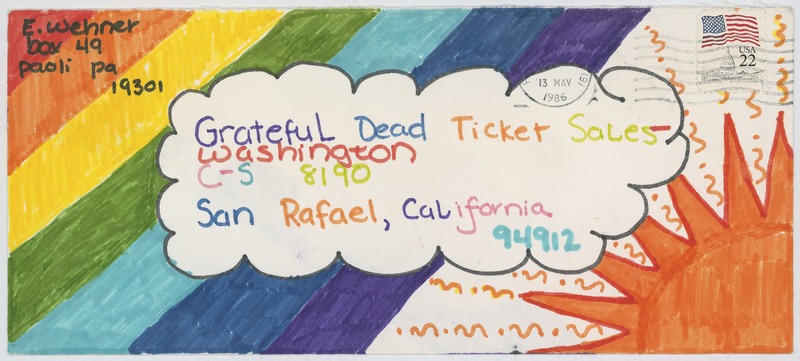 E. wehner
box 49
paoli pa
19301
13 MAY
1986
USA
22
Grateful Dead Ticket Sales-
washington
C-S 8190
San Rafael, California
94912